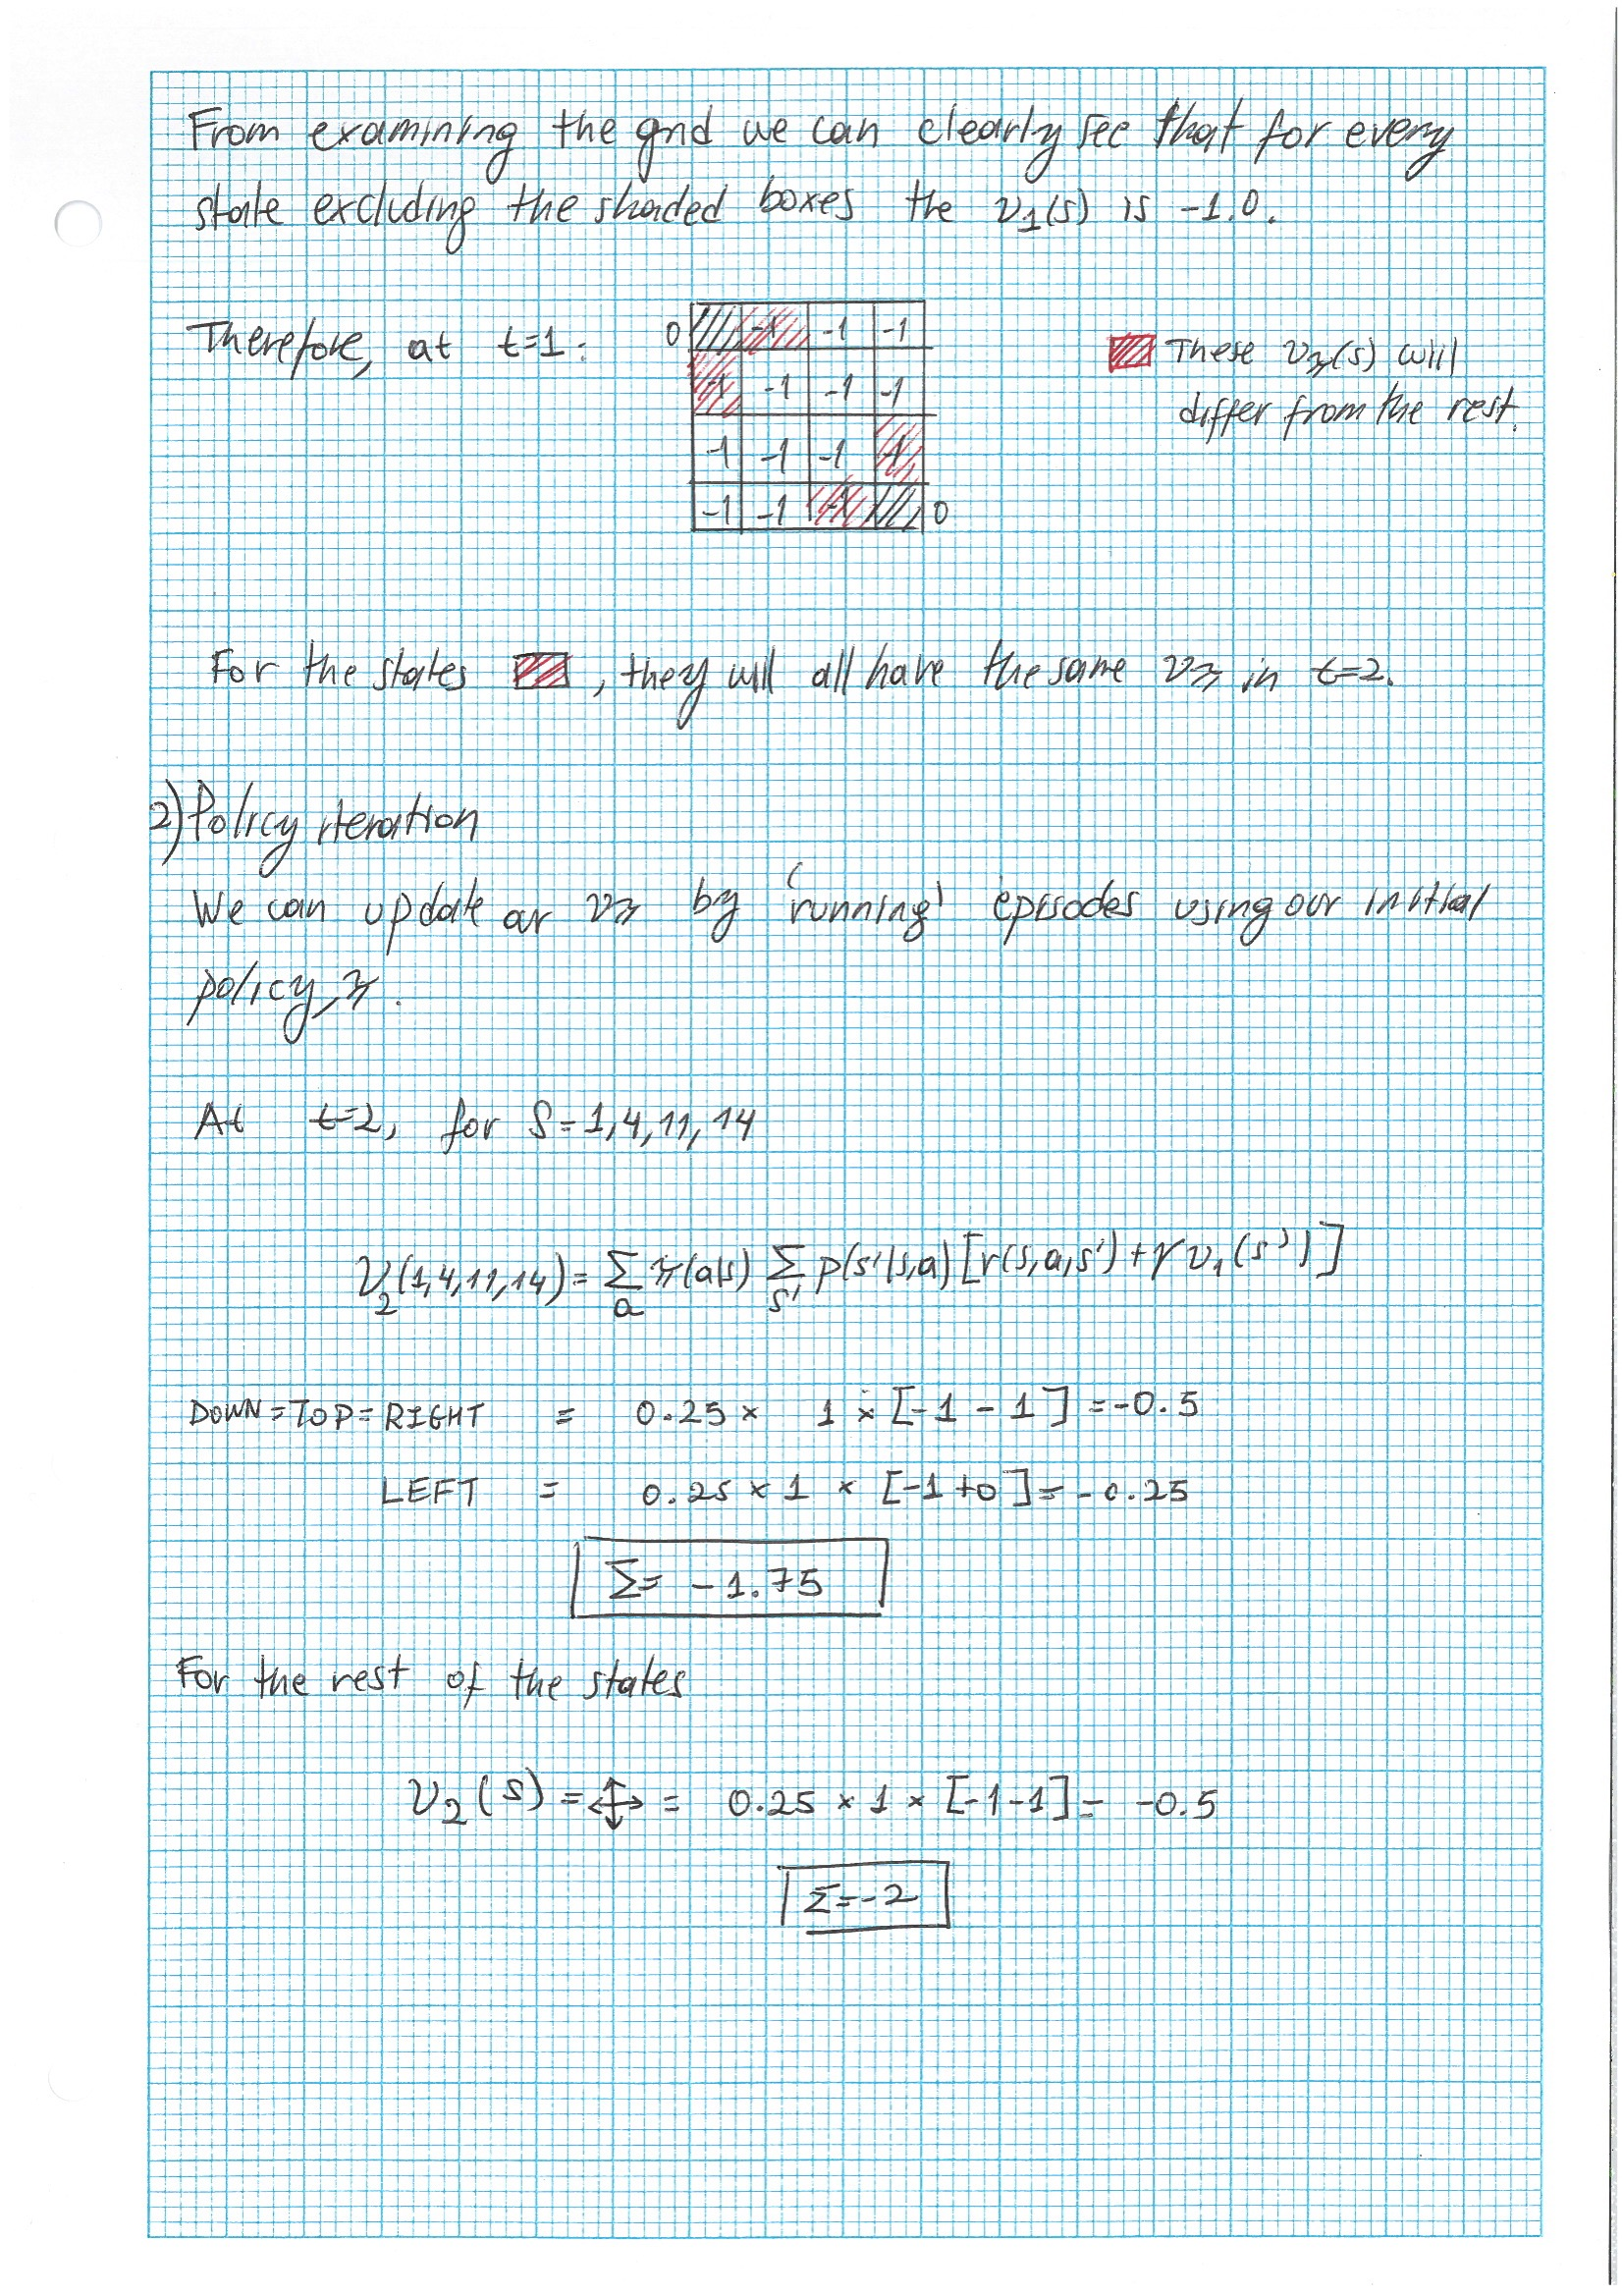 From examining the grid we can clearly see that for every
state excluding the shaded boxes the v₁(s) is -1.0.
Therefore, at t=1:
0 -1 -1 -1
-1 -1 -1 -1
-1 -1 -1 -1
-1 -1 -1 0
These vπ(s) will
differ from the rest.
For the states , they will all have the same vπ in t=2.
2) Policy iteration
We can update our vπ by 'running' episodes using our initial
policy, π.
At t=2, for S=1,4,11,14
V₂(1,4,11,14) = Σₐ π(a|s) Σₛ' p(s'|s,a) [r(s,a,s') + γ v₁(s')]
DOWN=TOP=RIGHT = 0.25 × 1 × [-1 - 1] = -0.5
LEFT = 0.25 × 1 × [-1 + 0] = -0.25
Σ = -1.75
For the rest of the states
V₂(s) = ↔↕ = 0.25 × 1 × [-1-1] = -0.5
Σ = -2